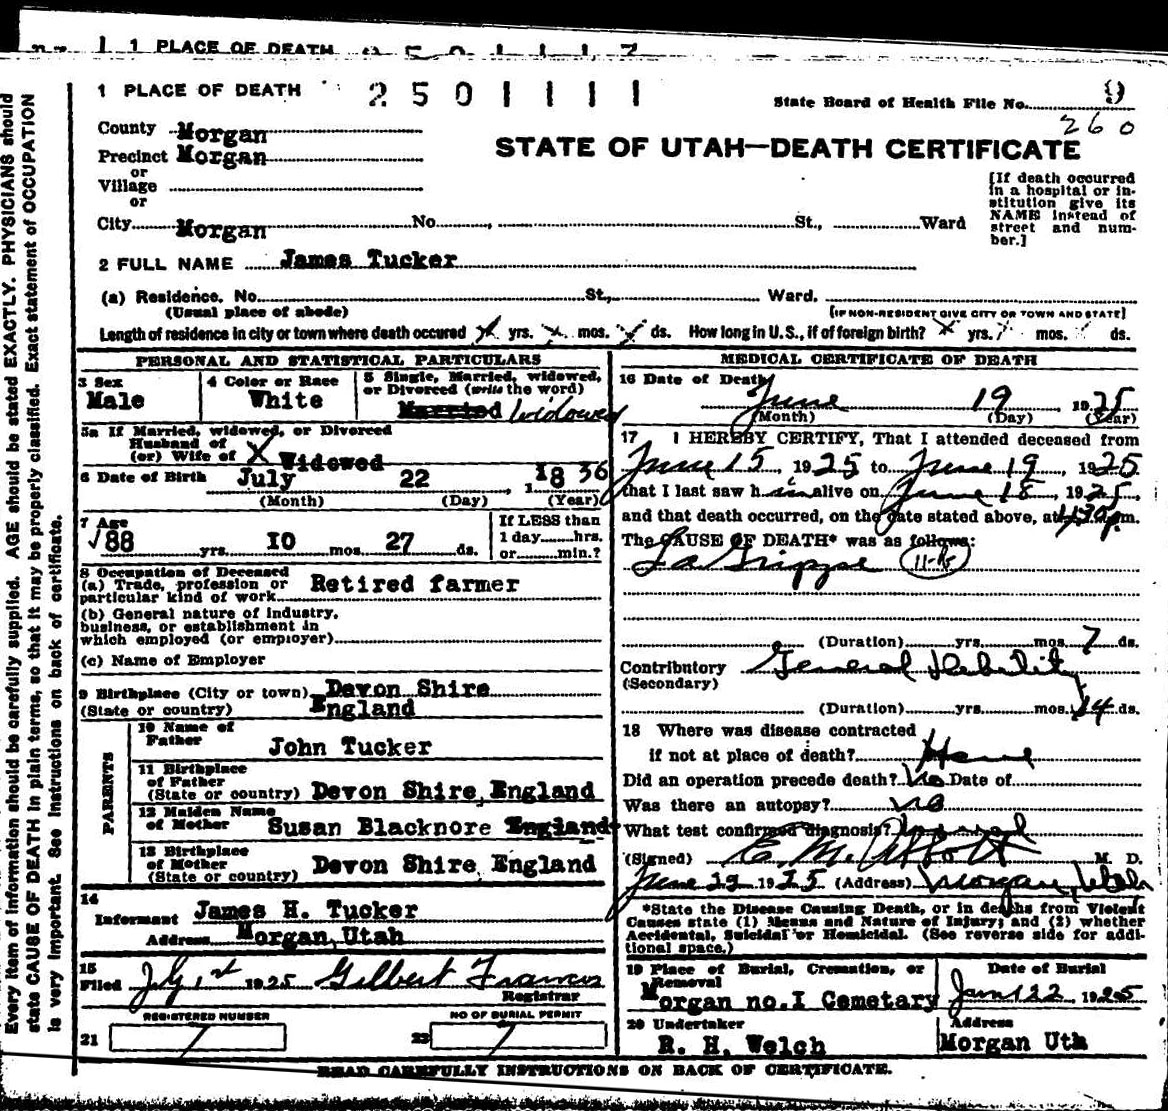 1 PLACE OF DEATH
1 PLACE OF DEATH 2501111 State Board of Health File No. 9
260
County Morgan
STATE OF UTAH—DEATH CERTIFICATE
Precinct Morgan
or
Village
or
City Morgan No. , St., Ward
[If death occurred
in a hospital or in-
stitution give its
NAME instead of
street and num-
ber.]
2 FULL NAME James Tucker
(a) Residence. No. St., Ward.
(Usual place of abode) [IF NON-RESIDENT GIVE CITY OR TOWN AND STATE]
Length of residence in city or town where death occured x yrs. x mos. x ds. How long in U.S., if of foreign birth? x yrs. mos. ds.
PERSONAL AND STATISTICAL PARTICULARS
3 Sex
Male
4 Color or Race
White
5 Single, Married, widowed,
or Divorced (write the word)
Married Widowed
5a If Married, widowed, or Divorced
Husband of
(or) Wife of X Widowed
6 Date of Birth July 22, 1836
(Month) (Day) (Year)
7 Age
88 yrs. IO mos. 27 ds.
If LESS than
1 day hrs.
or min.?
8 Occupation of Deceased
(a) Trade, profession or
particular kind of work Retired farmer
(b) General nature of industry,
business, or establishment in
which employed (or employer)
(c) Name of Employer
9 Birthplace (City or town) Devon Shire
(State or country) England
PARENTS
10 Name of
Father John Tucker
11 Birthplace
of Father
(State or country) Devon Shire, England
12 Maiden Name
of Mother Susan Blacknore England
13 Birthplace
of Mother
(State or country) Devon Shire, England
14
Informant James H. Tucker
Address Morgan, Utah
15
Filed July 1st 1925 Gilbert Francis
Registrar
REGISTERED NUMBER
21
NO OF BURIAL PERMIT
22
MEDICAL CERTIFICATE OF DEATH
16 Date of Death
June 19 1925
(Month) (Day) (Year)
17 I HEREBY CERTIFY, That I attended deceased from
June 15, 1925 to June 19, 1925
that I last saw him alive on June 18, 1925,
and that death occurred, on the date stated above, at m.
The CAUSE OF DEATH* was as follows:
La Grippe
(Duration) yrs. mos. 7 ds.
Contributory General Debility
(Secondary)
(Duration) yrs. mos. 14 ds.
18 Where was disease contracted
if not at place of death? Home
Did an operation precede death? No Date of
Was there an autopsy? no
What test confirmed diagnosis?
(Signed) E. M. Abbott M. D.
June 22 1925 (Address) Morgan, Utah
*State the Disease Causing Death, or in deaths from Violent
Causes state (1) Means and Nature of Injury; and (2) whether
Accidental, Suicidal or Homicidal. (See reverse side for addi-
tional space.)
19 Place of Burial, Cremation, or
Removal
Morgan no.I Cemetary
Date of Burial
Jun 22 1925
20 Undertaker
R. H. Welch
Address
Morgan Uth
READ CAREFULLY INSTRUCTIONS ON BACK OF CERTIFICATE.
Every item of information should be carefully supplied. AGE should be stated EXACTLY. PHYSICIANS should
state CAUSE OF DEATH in plain terms, so that it may be properly classified. Exact statement of OCCUPATION
is very important. See instructions on back of certificate.